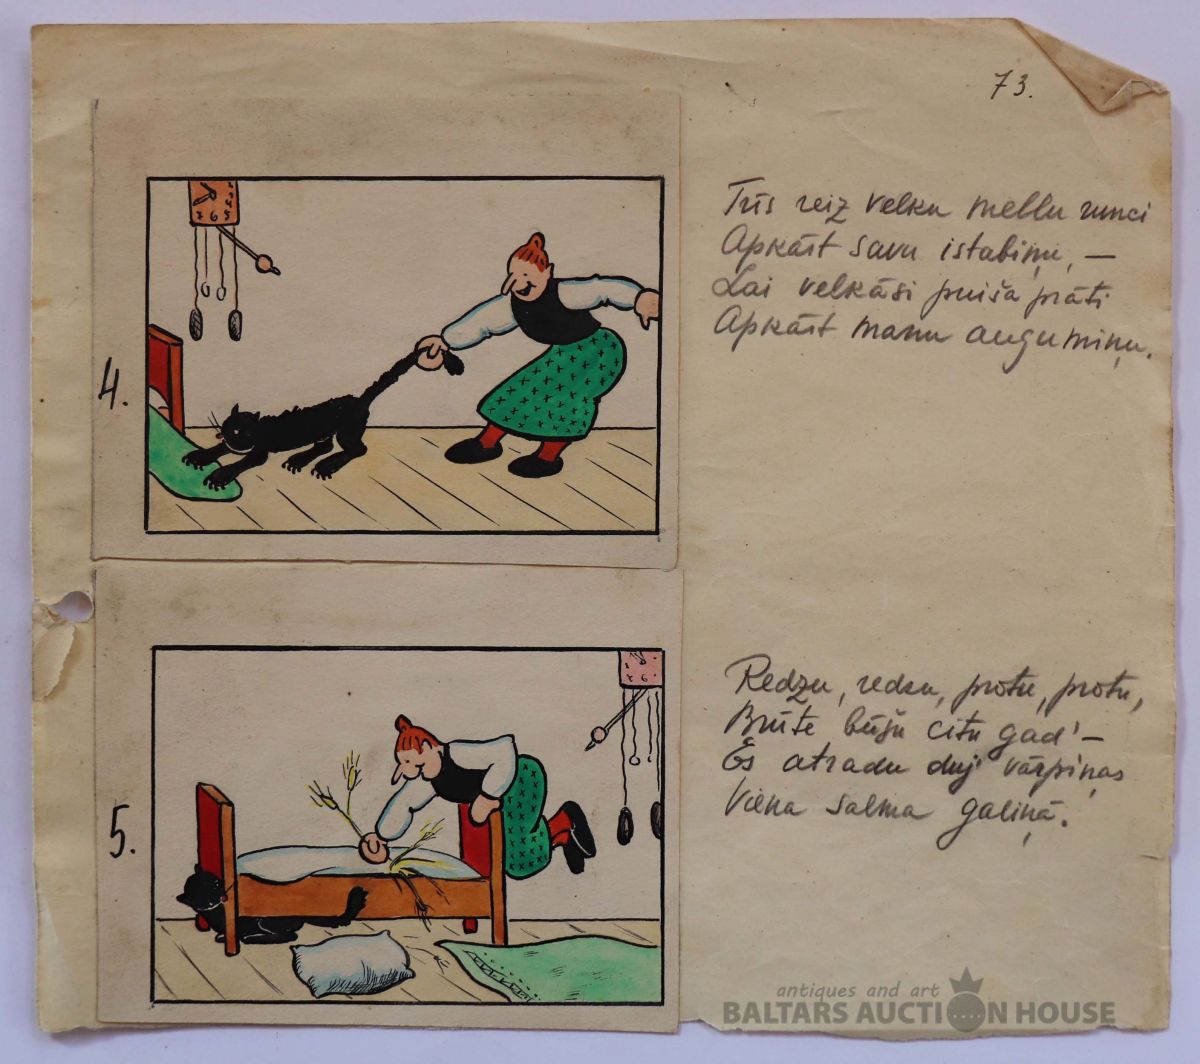 73.
4.
Trīs reiz velku mellu runci
Apkārt savu istabiņu, —
Lai velkāsi puiša prāti
Apkārt manu augumiņu.
5.
Redzu, redzu, protu, protu,
Brūte būšu citu gad' —
Es atradu divi vārpiņas
Viena salma galiņā.
antiques and art
BALTARS AUCTION HOUSE